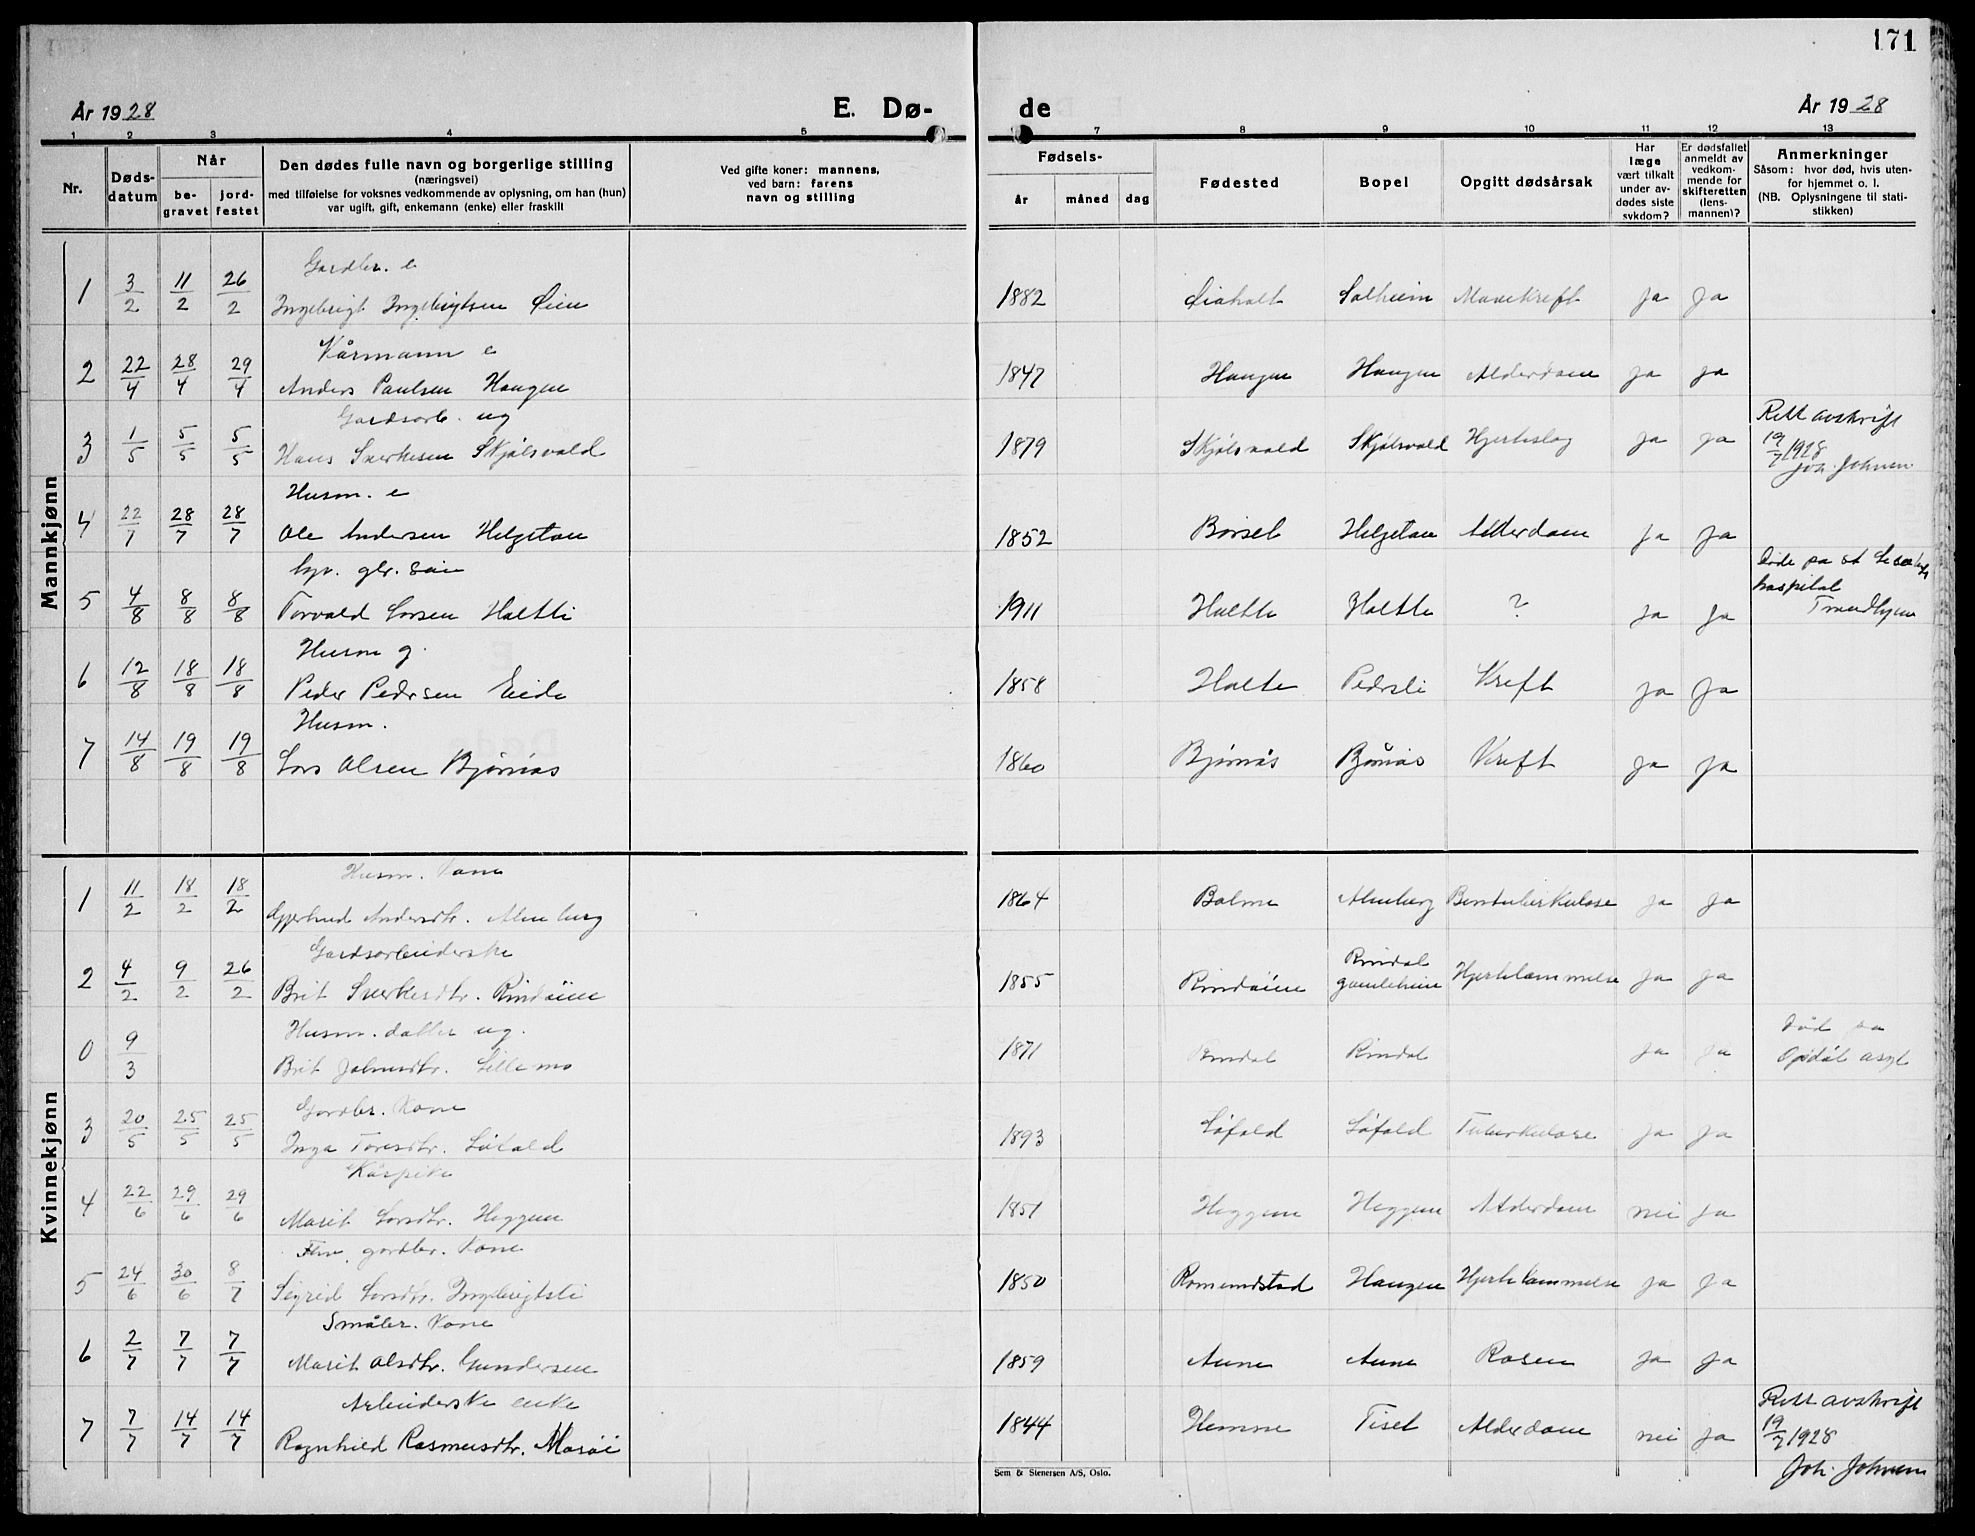 171
År 1928 E. Dø- de År 1928
1 2 3 4 5 7 8 9 10 11 12 13
Nr.
Døds-
datum
Når
be-
gravet
jord-
festet
Den dødes fulle navn og borgerlige stilling
(næringsvei)
med tilføielse for voksnes vedkommende av oplysning, om han (hun)
var ugift, gift, enkemann (enke) eller fraskilt
Ved gifte koner: mannens,
ved barn: farens
navn og stilling
Fødsels-
år måned dag
Fødested
Bopel
Opgitt dødsårsak
Har
læge
vært tilkalt
under av-
dødes siste
sykdom?
Er dødsfallet
anmeldt av
vedkom-
mende for
skifteretten
(lens-
mannen)?
Anmerkninger
Såsom: hvor død, hvis uten-
for hjemmet o. l.
(NB. Oplysningene til stati-
stikken)
Mannkjønn
Gardbr. e
1 3/2 11/2 26/2 Ingebrigt Ingebrigtsen Øien 1882 Solheim Mavekreft Ja Ja
Kårmann e
2 22/4 28/4 29/4 Anders Paulsen Haugen 1847 Haugen Haugen Alderdom Ja Ja
Gardsarb. ug
3 1/5 5/5 5/5 Hans Sverkesen Skjølsvold 1879 Skjølsvold Skjølsvold Hjerteslag Ja Ja
Rett avskrift
19/7 1928
Joh. Johnsen
Husm. e
4 22/7 28/7 28/7 Ole Andersen Helgetun 1852 Børset Helgetun Alderdom Ja Ja
gbr. søn
5 4/8 8/8 8/8 Torvald Larsen Holtli 1911 Holtli Holtli ? Ja Ja
Døde på St Elisabeths
hospital
Trondhjem
Husm g.
6 12/8 18/8 18/8 Peder Pedersen Eide 1858 Holte Pedersli Kreft Ja Ja
Husm.
7 14/8 19/8 19/8 Lars Olsen Bjørnås 1860 Bjørnås Bjørnås Kreft Ja Ja
Kvinnekjønn
Husm. Kone
1 11/2 18/2 18/2 Gjertrud Andersdtr. Almberg 1864 Bolme Almberg Bentuberkulose Ja Ja
Gardsarbeiderske
2 4/2 9/2 26/2 Brit Sverkesdtr. Rindøien 1855 Rindøien Rindal gamleheim Hjertelammelse Ja Ja
Husm. datter ug.
0 9/3 Brit Johnsdtr. Lillemo 1871 Rindal Rindal Ja Ja
Død på
Opdøl asyl
Gardbr. Kone
3 20/5 25/5 25/5 Inga Toresdtr. Løfald 1893 Løfald Løfald Tuberkulose Ja Ja
Kårpike
4 22/6 29/6 29/6 Marit Larsdtr. Heggem 1851 Heggem Heggem Alderdom nei Ja
Fhv gardbr. Kone
5 24/6 30/6 8/7 Sigrid Larsdtr. Ingebrigtsli 1850 Romundstad Haugen Hjertelammelse Ja Ja
Småbr. Kone
6 2/7 7/7 7/7 Marit Olsdtr. Gundersen 1859 Aune Aune Rosen Ja Ja
Arbeiderske enke
7 7/7 14/7 14/7 Ragnhild Rasmusdtr. Morøi 1844 Hemne Tiset Alderdom nei Ja
Rett avskrift
19/7 1928
Joh. Johnsen
Sem & Stenersen A/S, Oslo.